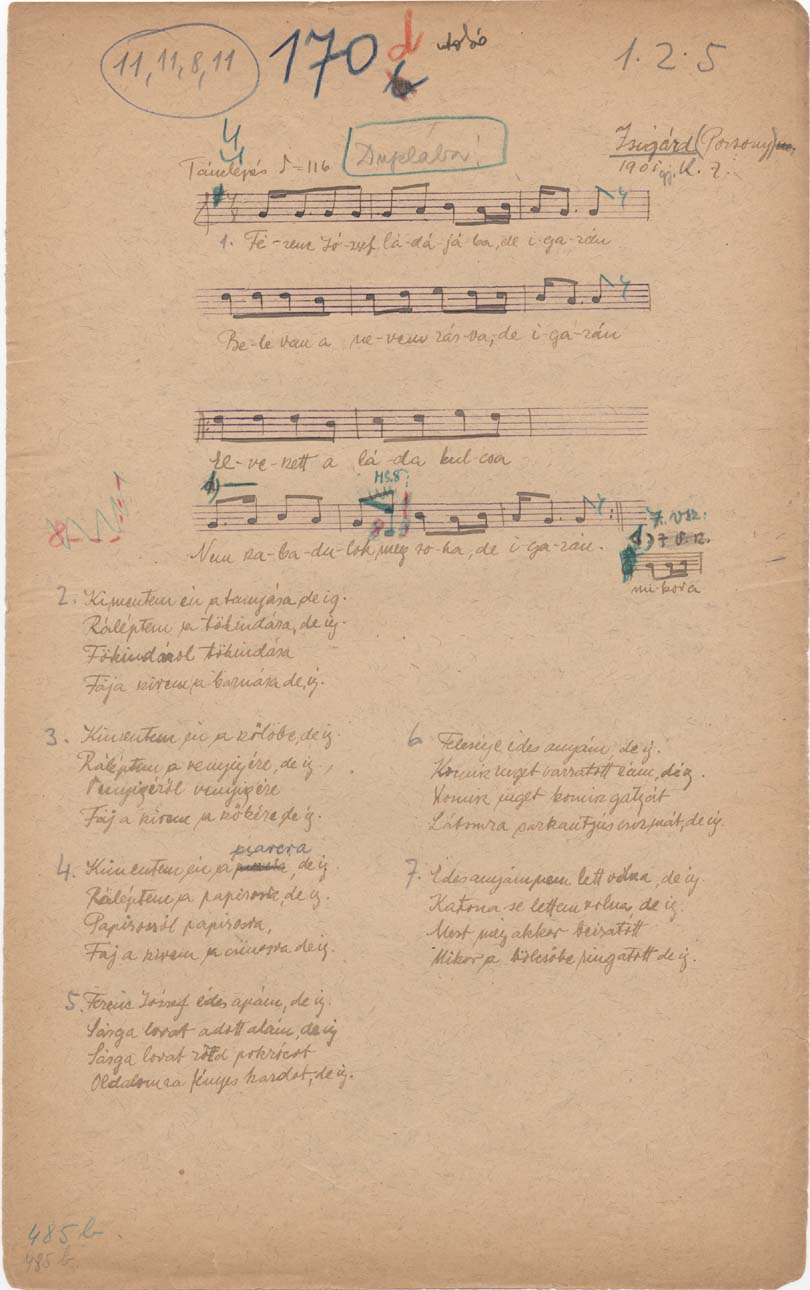 11, 11, 8, 11
170 d
utolsó
1. 2. 5
Zsigárd (Pozsony)
1905 gy. K. Z.
Tánclépés ♪=116
Duplába!
1. Fe-renc Jó-zsef lá-dá-já-ba, de i-ga-zán
Be-le van a ne-vem zár-va, de i-ga-zán
El-ve-szett a lá-da kul-csa
MS.8
8
Nem sza-ba-du-lok meg so-ha, de i-ga-zán.
7. vsz.
mi-kor a
2. Kimentem én a tarnjára de ig.
Ráléptem a tökindára, de ig.
Tökindáról tökindára
Fáj a szivem a barnára, de ig.
3. Kimentem én a szőlőbe, de ig.
Ráléptem a venyigére, de ig.,
Venyigéről venyigére
Fáj a szivem a szőkére de ig.
4. Kimentem én a piarcra, de ig
Ráléptem a papirosra, de ig.
Papirosról papirosra,
Fáj a szivem a cimosra de ig.
5. Ferenc József édes apám, de ig.
Sárga lovat adott alám, de ig
Sárga lovat zöld pokrócot
Oldalomra fényes kardot, de ig.
6 Felesége édes anyám, de ig.
Komisz inget varratott rám, de ig.
Komisz inget komisz gatyát
Lábomra sarkantyús csizmát, de ig.
7. Édes anyám nem lett vólna, de ig
Katona se lettem volna, de ig.
Mert még akkor beiratott
Mikor a bölcsőbe ringatott de ig.
485 b.
485 b.